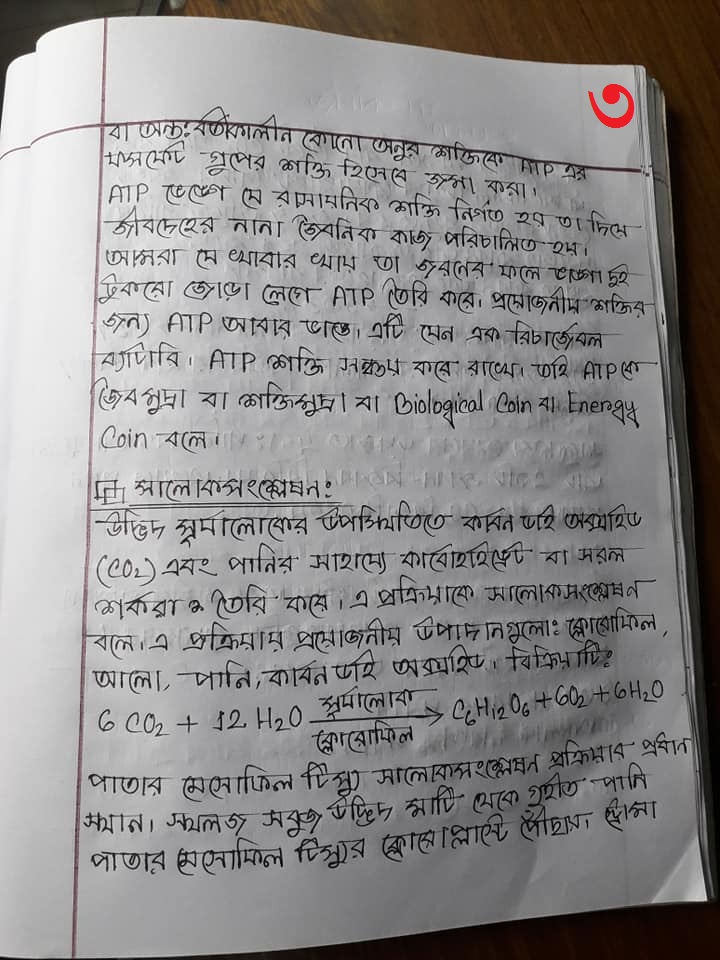 ৩
বা অন্তঃবর্তীকালীন কোনো অনুর শক্তিকে ATP এর
ফসফেট গ্রুপের শক্তি হিসেবে জমা করা।
ATP ভেঙ্গে যে রাসায়নিক শক্তি নির্গত হয় তা দিয়ে
জীবদেহের নানা জৈবনিক কাজ পরিচালিত হয়।
আমরা যে খাবার খায় তা জারনের ফলে ভাঙ্গা দুই
টুকরো জোড়া লেগে ATP তৈরি করে। প্রয়োজনীয় শক্তির
জন্য ATP আবার ভাঙে। এটি যেন এক রিচার্জেবল
ব্যাটারি। ATP শক্তি সঞ্চয় করে রাখে। তাই ATP কে
জৈবমুদ্রা বা শক্তিমুদ্রা বা Biological Coin বা Energy
Coin বলে।
সালোকসংশ্লেষন:
উদ্ভিদ সূর্যালোকের উপস্থিতিতে কার্বন ডাই অক্সাইড
(CO₂) এবং পানির সাহায্যে কার্বোহাইড্রেট বা সরল
শর্করা তৈরি করে। এ প্রক্রিয়াকে সালোকসংশ্লেষন
বলে। এ প্রক্রিয়ায় প্রয়োজনীয় উপাদানগুলো: ক্লোরোফিল,
আলো, পানি, কার্বন ডাই অক্সাইড। বিক্রিয়াটি:
6 CO₂ + 12 H₂O সূর্যালোক ক্লোরোফিল → C₆H₁₂O₆ + 6O₂ + 6H₂O
পাতার মেসোফিল টিস্যু সালোকসংশ্লেষন প্রক্রিয়ার প্রধান
স্থান। স্থলজ সবুজ উদ্ভিদ মাটি থেকে গৃহীত পানি
পাতার মেসোফিল টিস্যুর ক্লোরোপ্লাস্টে পৌঁছায়।